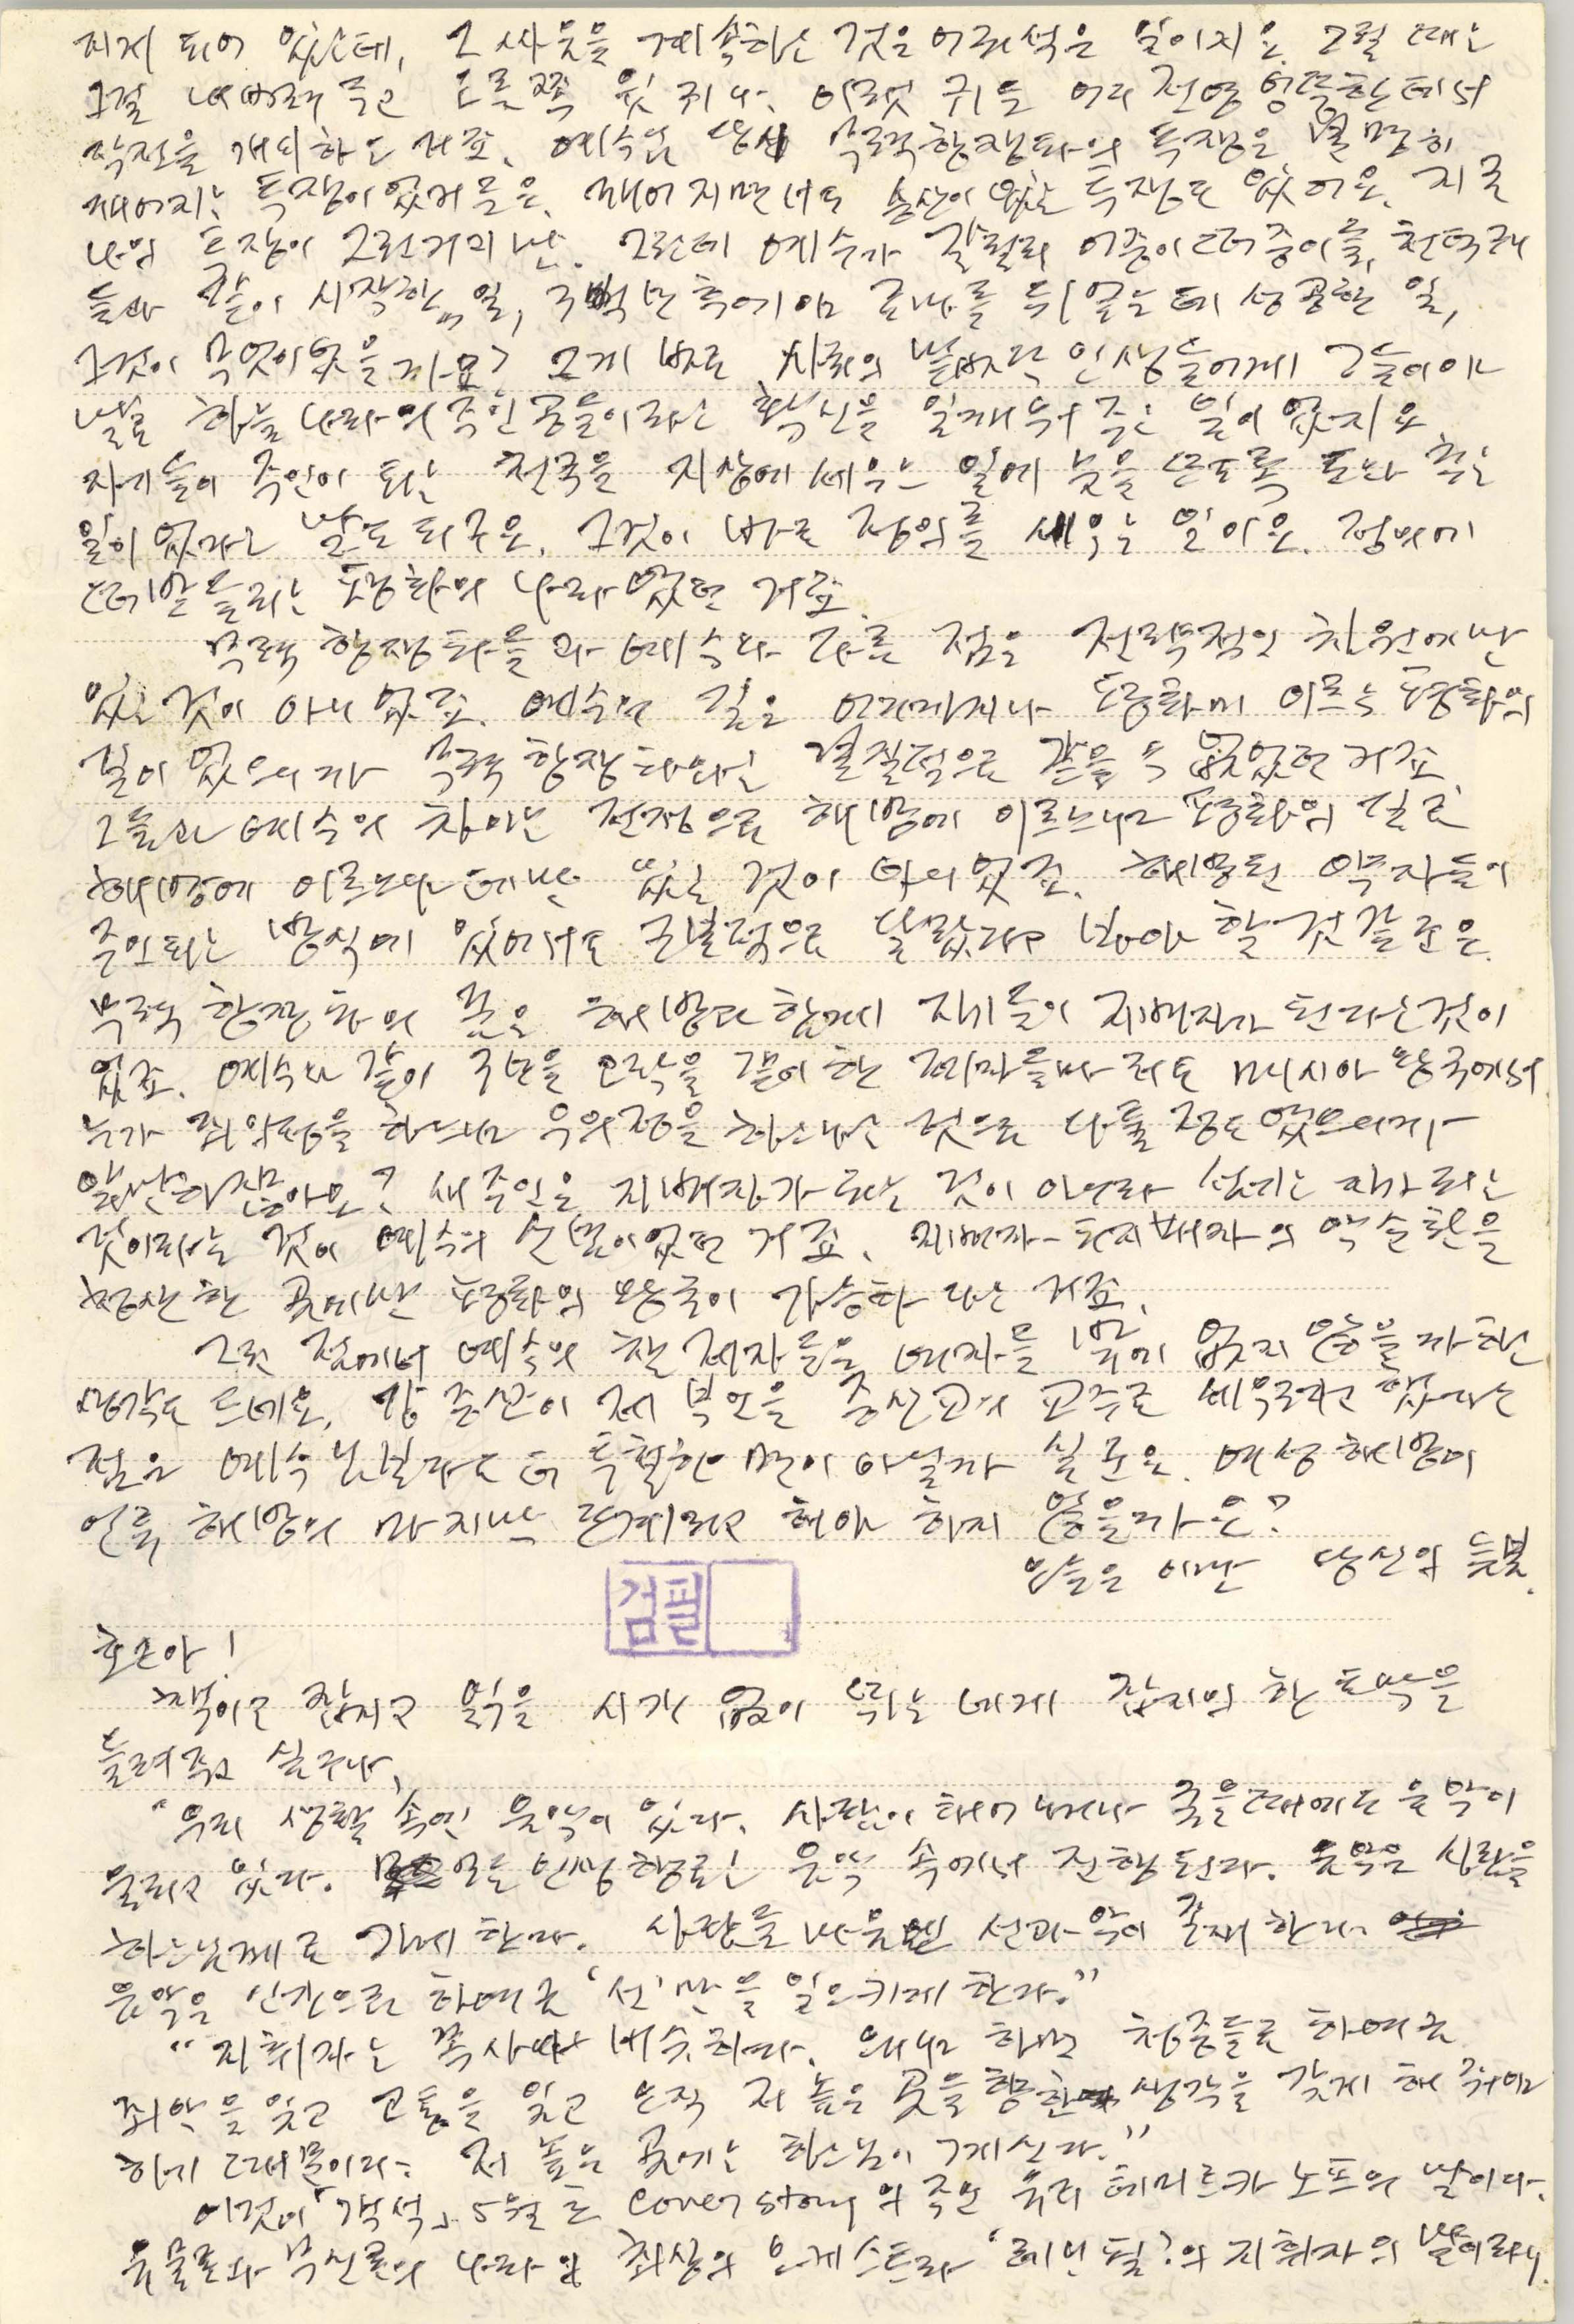 지게 되어 있는데, 그 싸움을 계속하는 것은 어리석은 일이지요. 그럴 때는
그걸 내버려 두고
작전을 개시하는 거죠. 예수님 당시 무력항쟁파의 투쟁은 분명히
깨어지는 투쟁이었거든요. 깨어지면서도 승산이 있는 투쟁도 있어요. 지금
나의 투쟁이 그런거지만. 그런데 예수가 갈릴리 어중이떠중이들, 천덕꾸
들과 같이 시작한 일, 3백년 후에야 로마를 뒤엎는데 성공한 일,
그것이 무엇이었을까요? 그게 바로 사회의 밑바닥 인생들에게 그들이야
말로 하늘나라의 주인공들이라는 확신을 일깨워 주는 일이었지요.
자기들이 주인이 되는 천국을 지상에 세우는 일에 눈을 뜨도록 도와 주는
일이었다고 말해도 되구요. 그것이 바로 정의를 세우는 일이요. 정의에
떠받들리는 평화의 나라였던 거죠.
무력 항쟁파들과 예수가 다른 점은 전략적인 차원에만
있는 것이 아니었죠. 예수의 길은 어디까지나 평화에 이르는 평화의
길이었으니까 무력 항쟁파와는 본질적으로 같을 수 없었던 거죠.
그들과 예수의 차이는 전쟁으로 해방에 이르느냐 평화의 길로
해방에 이르느냐 데만 있는 것이 아니었죠. 해방된 약자들이
주인되는 방식에 있어서도 근본적으로 달랐다고 보아야 할 것 같군요.
무력 항쟁파의 꿈은 해방과 함께 자기들이 지배자가 된다는 것이
었죠. 예수와 같이 3년을 고락을 같이 한 제자들마저도 메시아 왕국에서
누가 좌의정을 하느냐 우의정을 하느냐는 것으로 다툴 정도였으니까
알만하잖아요? 새 주인은 지배자가 되는 것이 아니라 섬기는 자가 되는
것이라는 것이 예수의 선언이었던 거죠. 지배자-피지배자의 악순환을
청산한 곳에만 평화의 왕국이 가능하다는 거죠.
그런 점에서 예수의 참 제자들은 여자들 밖에 없지 않을까 하는
생각도 드네요. 강증산이 제 부인을 증산교의 교주로 세우려고 했다는
점은 예수님보다도 더 투철한 면이 아닐까 싶군요. 여성 해방이
인류 해방의 마지막 단계라고 해야 하지 않을까요?
오늘은 이만 당신의 늦봄.
검필
호근아!
책이고 잡지고 읽을 시간 없이 뛰는 네게 잡지의 한 토막을
들려주고 싶구나.
"우리 생활 속엔 음악이 있다. 사람이 태어나거나 죽을 때에도 음악이
울리고 있다. 모든 인생 항로는 음악 속에서 진행된다. 음악은 사람을
하느님께로 가게 한다. 사람들 마음엔 선과 악이 존재한다.
음악은 인간으로 하여금 '선'만을 일으키게 한다."
"지휘자는 목사와 비슷하다. 왜냐 하면 청중들로 하여금
죄악을 잊고 고통을 잊고 오직 저 높은 곳을 향한 생각을 갖게 해 주어야
하기 때문이다. 저 높은 곳에는 하느님이 계신다."
이것이 「객석」 5월호 cover story의 주인 유리 테미르카노프의 말이다.
유물론과 무신론의 나라의 최상의 오케스트라 '레닌필'의 지휘자의 말이라니.